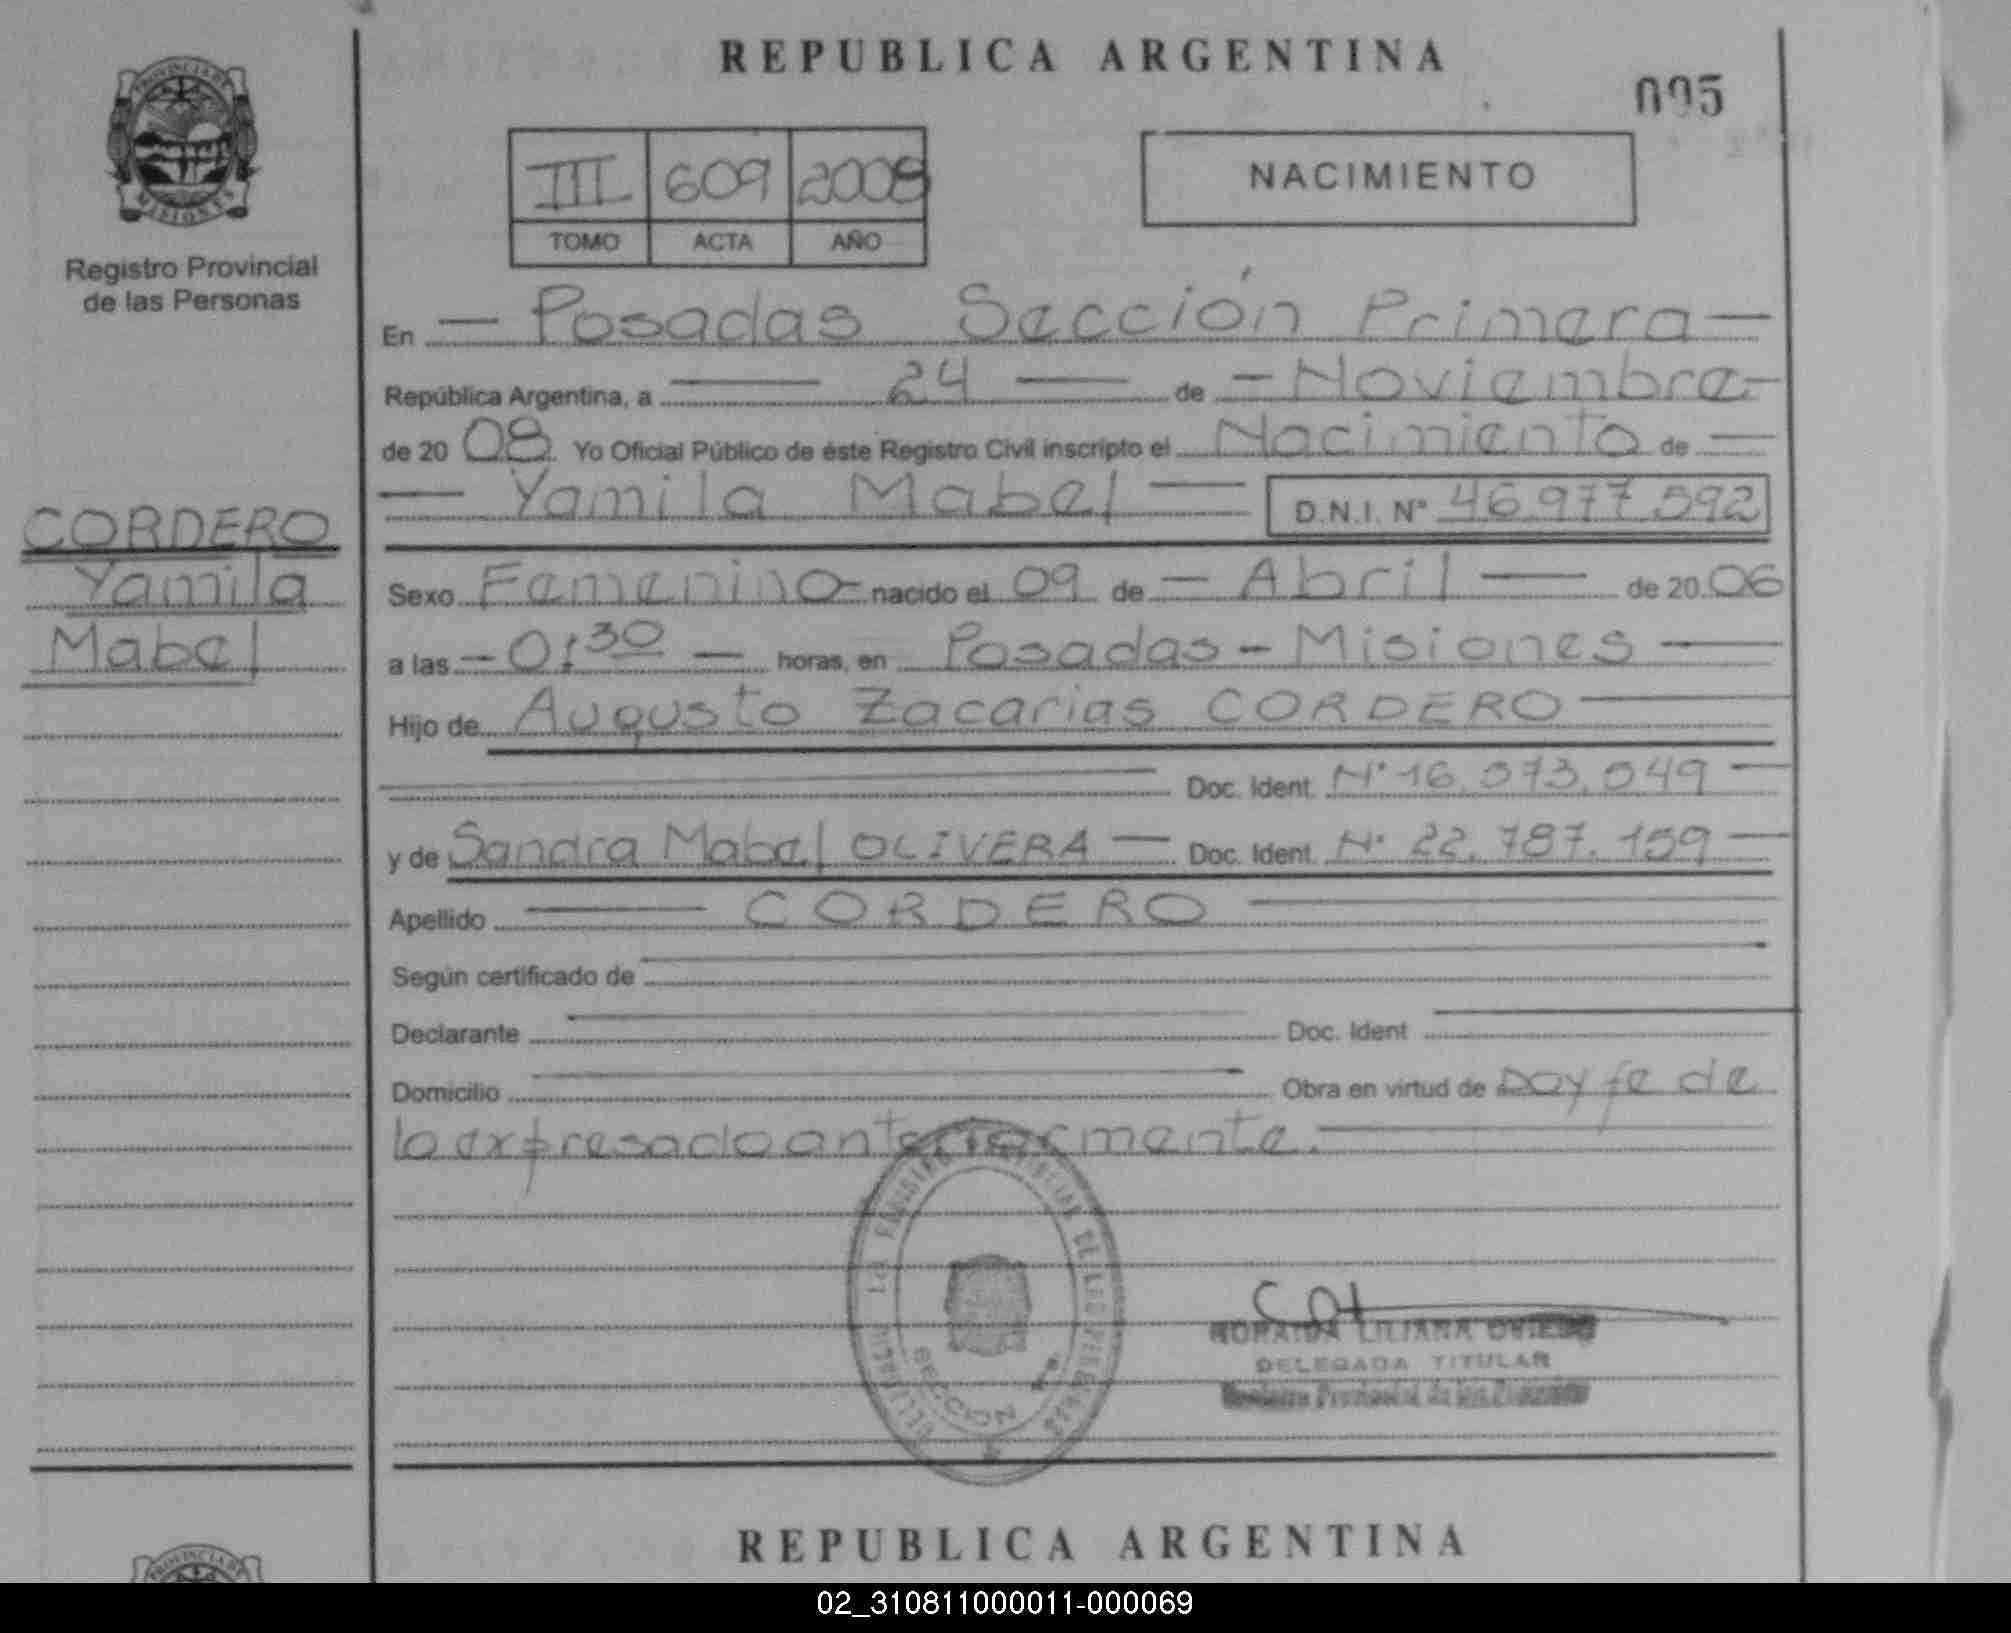 REPUBLICA ARGENTINA
095
PROVINCIA DE
MISIONES
Registro Provincial
de las Personas
III 609 2008
TOMO ACTA AÑO
NACIMIENTO
En — Posadas Sección Primera —
República Argentina, a — 24 — de — Noviembre —
de 20 08. Yo Oficial Público de éste Registro Civil inscripto el Nacimiento de —
— Yamila Mabel — D.N.I. N° 46.977.592
CORDERO
Yamila
Mabel
Sexo Femenino - nacido el 09 de — Abril — de 20 06
a las — 01:30 — horas, en Posadas - Misiones —
Hijo de Augusto Zacarias CORDERO —
Doc. Ident. N° 16.573.549 —
y de Sandra Mabel OLIVERA — Doc. Ident. N° 22.787.159 —
Apellido — CORDERO —
Según certificado de
Declarante Doc. Ident
Domicilio Obra en virtud de Doy fe de
lo expresado anteriormente.
REGISTRO PROVINCIAL DE LAS PERSONAS
SECCION
NORAIDA LILIANA OVIEDO
DELEGADA TITULAR
Registro Provincial de las Personas
REPUBLICA ARGENTINA
PROVINCIA DE
02_310811000011-000069